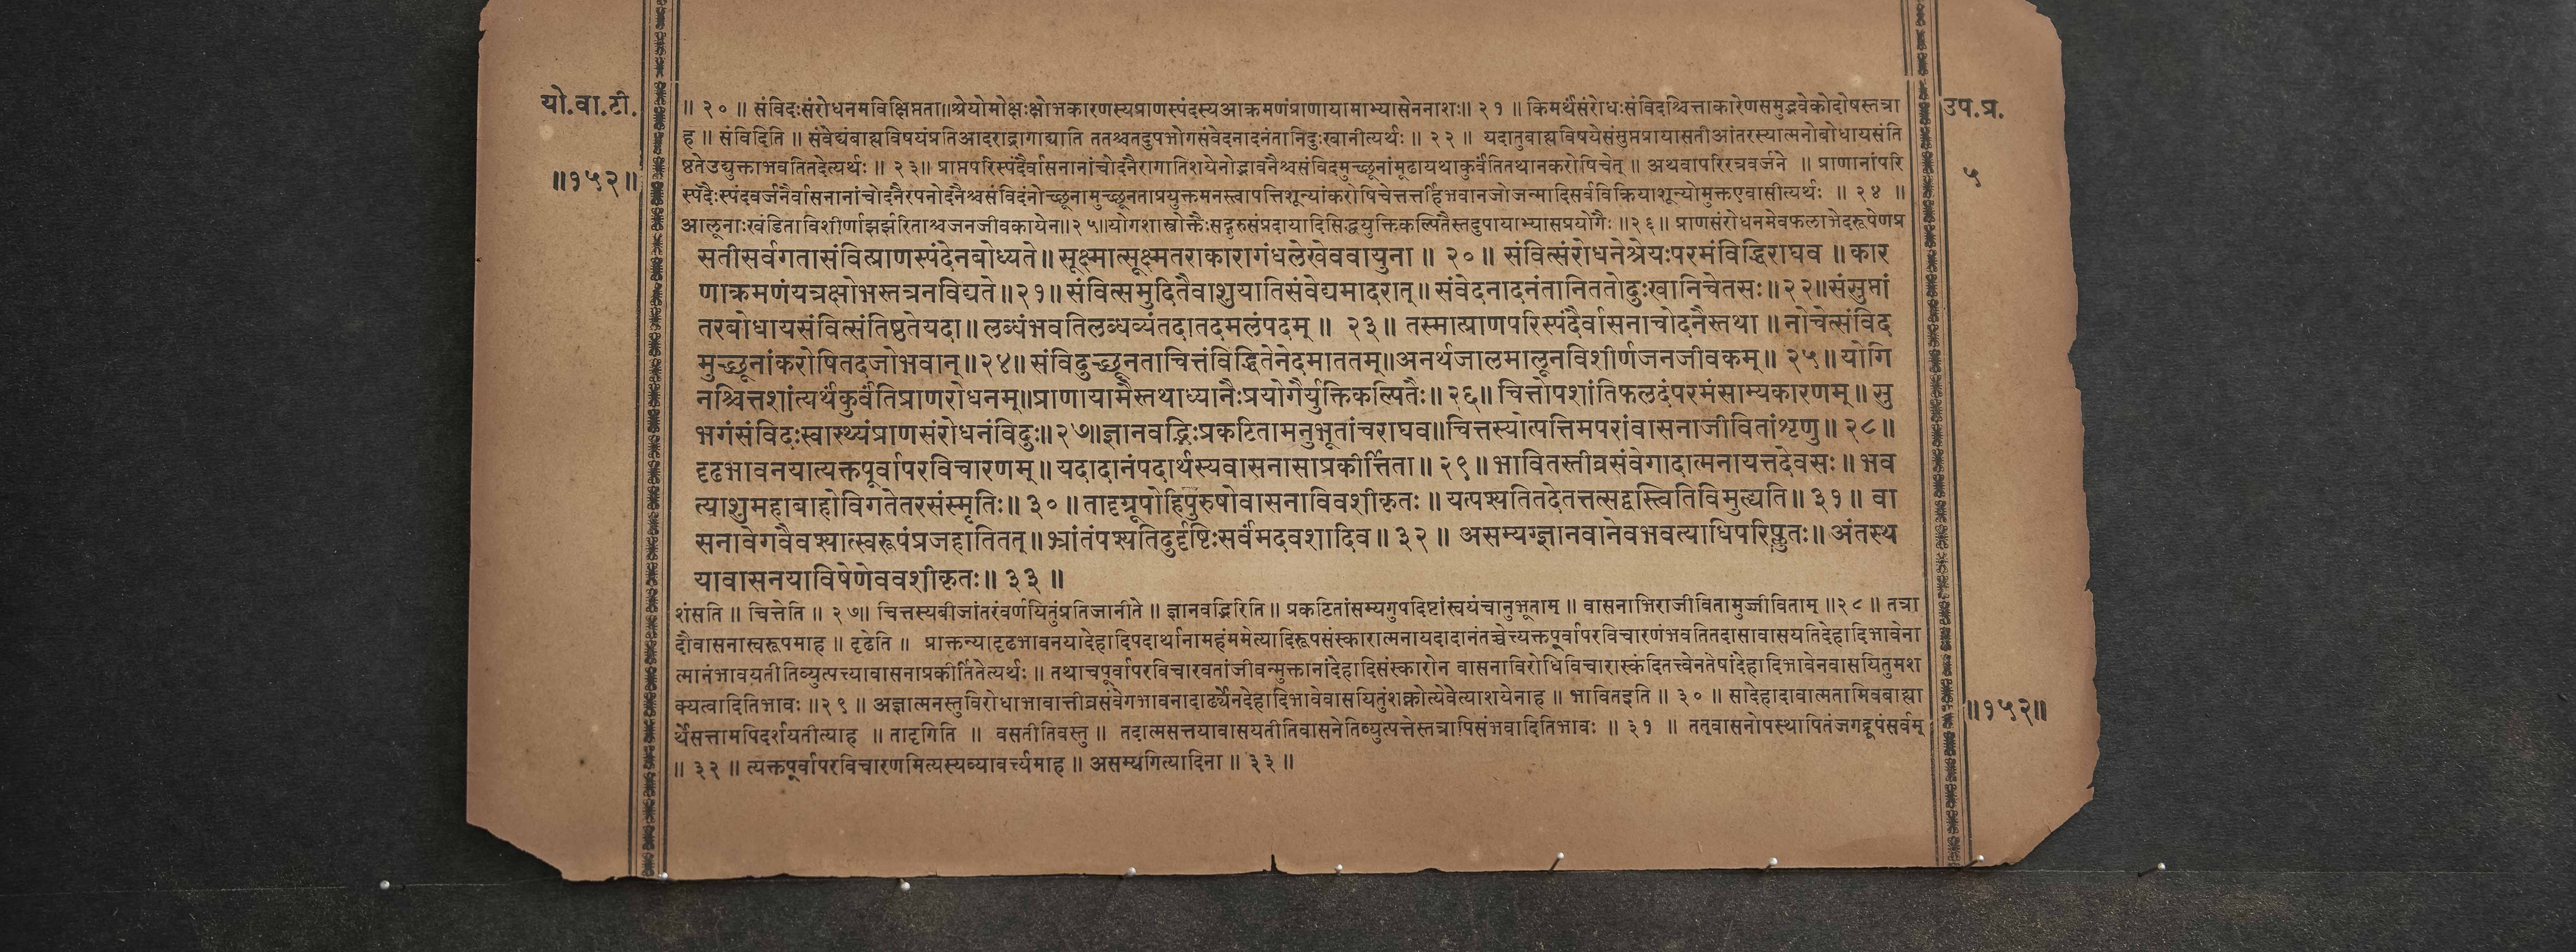 यो.वा.टी.
॥१५२॥
॥ २० ॥ संविदःसंरोधनमविक्षिप्तता॥श्रेयोमोक्षःक्षोभकारणस्यप्राणस्पंदस्यआक्रमणंप्राणायामाभ्यासेननाशः॥ २१ ॥ किमर्थंसंरोधःसंविदश्चित्ताकारेणसमुद्भवेकोदोषस्तत्रा
ह ॥ संविदिति ॥ संवेद्यंबाह्यविषयंप्रतिआदराद्रागाद्याति ततश्चतदुपभोगसंवेदनादनंतानिदुःखानीत्यर्थः ॥ २२ ॥ यदातुबाह्यविषयेसंसुप्तप्रायासतीआंतरस्यात्मनोबोधायसंति
ष्ठतेउद्युक्ताभवतितदेत्यर्थः ॥ २३॥ प्राप्तपरिस्पंदैर्वासनानांचोदनैरागातिशयेनोद्भावनैश्चसंविदमुच्छूनांमूढायथाकुर्वंतितथानकरोषिचेत् ॥ अथवापरिरत्रवर्जने ॥ प्राणानांपरि
स्पंदैःस्पंदवर्जनैर्वासनानांचोदनैरपनोदनैश्चसंविदंनोच्छूनामुच्छूनताप्रयुक्तमनस्त्वापत्तिशून्यांकरोषिचेत्तत्तर्हिभवानजोजन्मादिसर्वविक्रियाशून्योमुक्तएवासीत्यर्थः ॥ २४ ॥
आलूनाःखंडिताविशीर्णाझर्झरिताश्चजनजीवकायेन॥२५॥योगशास्त्रोक्तैःसद्गुरुसंप्रदायादिसिद्धयुक्तिकल्पितैस्तदुपायाभ्यासप्रयोगैः ॥२६॥ प्राणसंरोधनमेवफलाभेदरूपेणप्र
सतीसर्वगतासंवित्प्राणस्पंदेनबोध्यते॥ सूक्ष्मात्सूक्ष्मतराकारागंधलेखेववायुना ॥ २० ॥ संवित्संरोधनेश्रेयःपरमंविद्धिराघव ॥ कार
णाक्रमणंयत्रक्षोभस्तत्रनविद्यते॥२१॥ संवित्समुदितैवाशुयातिसंवेद्यमादरात्॥ संवेदनादनंतानिततोदुःखानिचेतसः॥२२॥संसुप्तां
तरबोधायसंवित्संतिष्ठतेयदा॥ लब्धंभवतिलब्धव्यंतदातदमलंपदम् ॥ २३॥ तस्मात्प्राणपरिस्पंदैर्वासनाचोदनैस्तथा ॥ नोचेत्संविद
मुच्छूनांकरोषितदजोभवान्॥२४॥ संविदुच्छूनताचित्तंविद्धितेनेदमाततम्॥अनर्थजालमालूनविशीर्णजनजीवकम्॥ २५॥ योगि
नश्चित्तशांत्यर्थंकुर्वंतिप्राणरोधनम्॥प्राणायामैस्तथाध्यानैःप्रयोगैर्युक्तिकल्पितैः॥ २६॥ चित्तोपशांतिफलदंपरमंसाम्यकारणम्॥ सु
भगंसंविदःस्वास्थ्यंप्राणसंरोधनंविदुः॥२७॥ज्ञानवद्भिःप्रकटितामनुभूतांचराघव॥चित्तस्योत्पत्तिमपरांवासनाजीवितांशृणु॥ २८॥
दृढभावनयात्यक्तपूर्वापरविचारणम्॥ यदादानंपदार्थस्यवासनासाप्रकीर्त्तिता॥ २९॥ भावितस्तीव्रसंवेगादात्मनायत्तदेवसः॥ भव
त्याशुमहाबाहोविगतेतरसंस्मृतिः॥ ३० ॥ तादृग्रूपोहिपुरुषोवासनाविवशीकृतः ॥ यत्पश्यतितदेतत्तत्सद्वस्त्वितिविमुह्यति॥ ३१॥ वा
सनावेगवैवश्यात्स्वरूपंप्रजहातितत्॥ भ्रांतंपश्यतिदुर्दृष्टिःसर्वंमदवशादिव॥ ३२ ॥ असम्यग्ज्ञानवानेवभवत्याधिपरिप्लुतः॥ अंतस्थ
यावासनयाविषेणेववशीकृतः॥ ३३ ॥
शंसति ॥ चित्तेति ॥ २७॥ चित्तस्यबीजांतरंवर्णयितुंप्रतिजानीते ॥ ज्ञानवद्भिरिति॥ प्रकटितांसम्यगुपदिष्टांस्वयंचानुभूताम् ॥ वासनाभिराजीवितामुज्जीविताम् ॥२८॥ तत्रा
दौवासनास्वरूपमाह ॥ दृढेति ॥ प्राक्तन्यादृढभावनयादेहादिपदार्थानामहंममेत्यादिरूपसंस्कारात्मनायदादानंतच्चेत्त्यक्तपूर्वापरविचारणंभवतितदासावासयतिदेहादिभावेना
त्मानंभावयतीतिव्युत्पत्त्यावासनाप्रकीर्तितेत्यर्थः ॥ तथाचपूर्वापरविचारवतांजीवन्मुक्तानांदेहादिसंस्कारोन वासनाविरोधिविचारास्कंदितत्त्वेनतेषांदेहादिभावेनवासयितुमश
क्यत्वादितिभावः ॥२९॥ अज्ञात्मनस्तुविरोधाभावात्तीव्रसंवेगभावनादार्ढ्येनदेहादिभावेवासयितुंशक्नोत्येवेत्याशयेनाह ॥ भावितइति ॥ ३० ॥ सादेहादावात्मतामिवबाह्या
र्थेसत्तामपिदर्शयतीत्याह ॥ तादृगिति ॥ वसतीतिवस्तु ॥ तदात्मसत्तयावासयतीतिवासनेतिव्युत्पत्तेस्तत्रापिसंभवादितिभावः ॥ ३१ ॥ तत्वासनोपस्थापितंजगद्रूपंसर्वम्
॥ ३२ ॥ त्यक्तपूर्वापरविचारणमित्यस्यव्यावर्त्यमाह ॥ असम्यगित्यादिना ॥ ३३ ॥
उप.प्र.
५
॥१५२॥